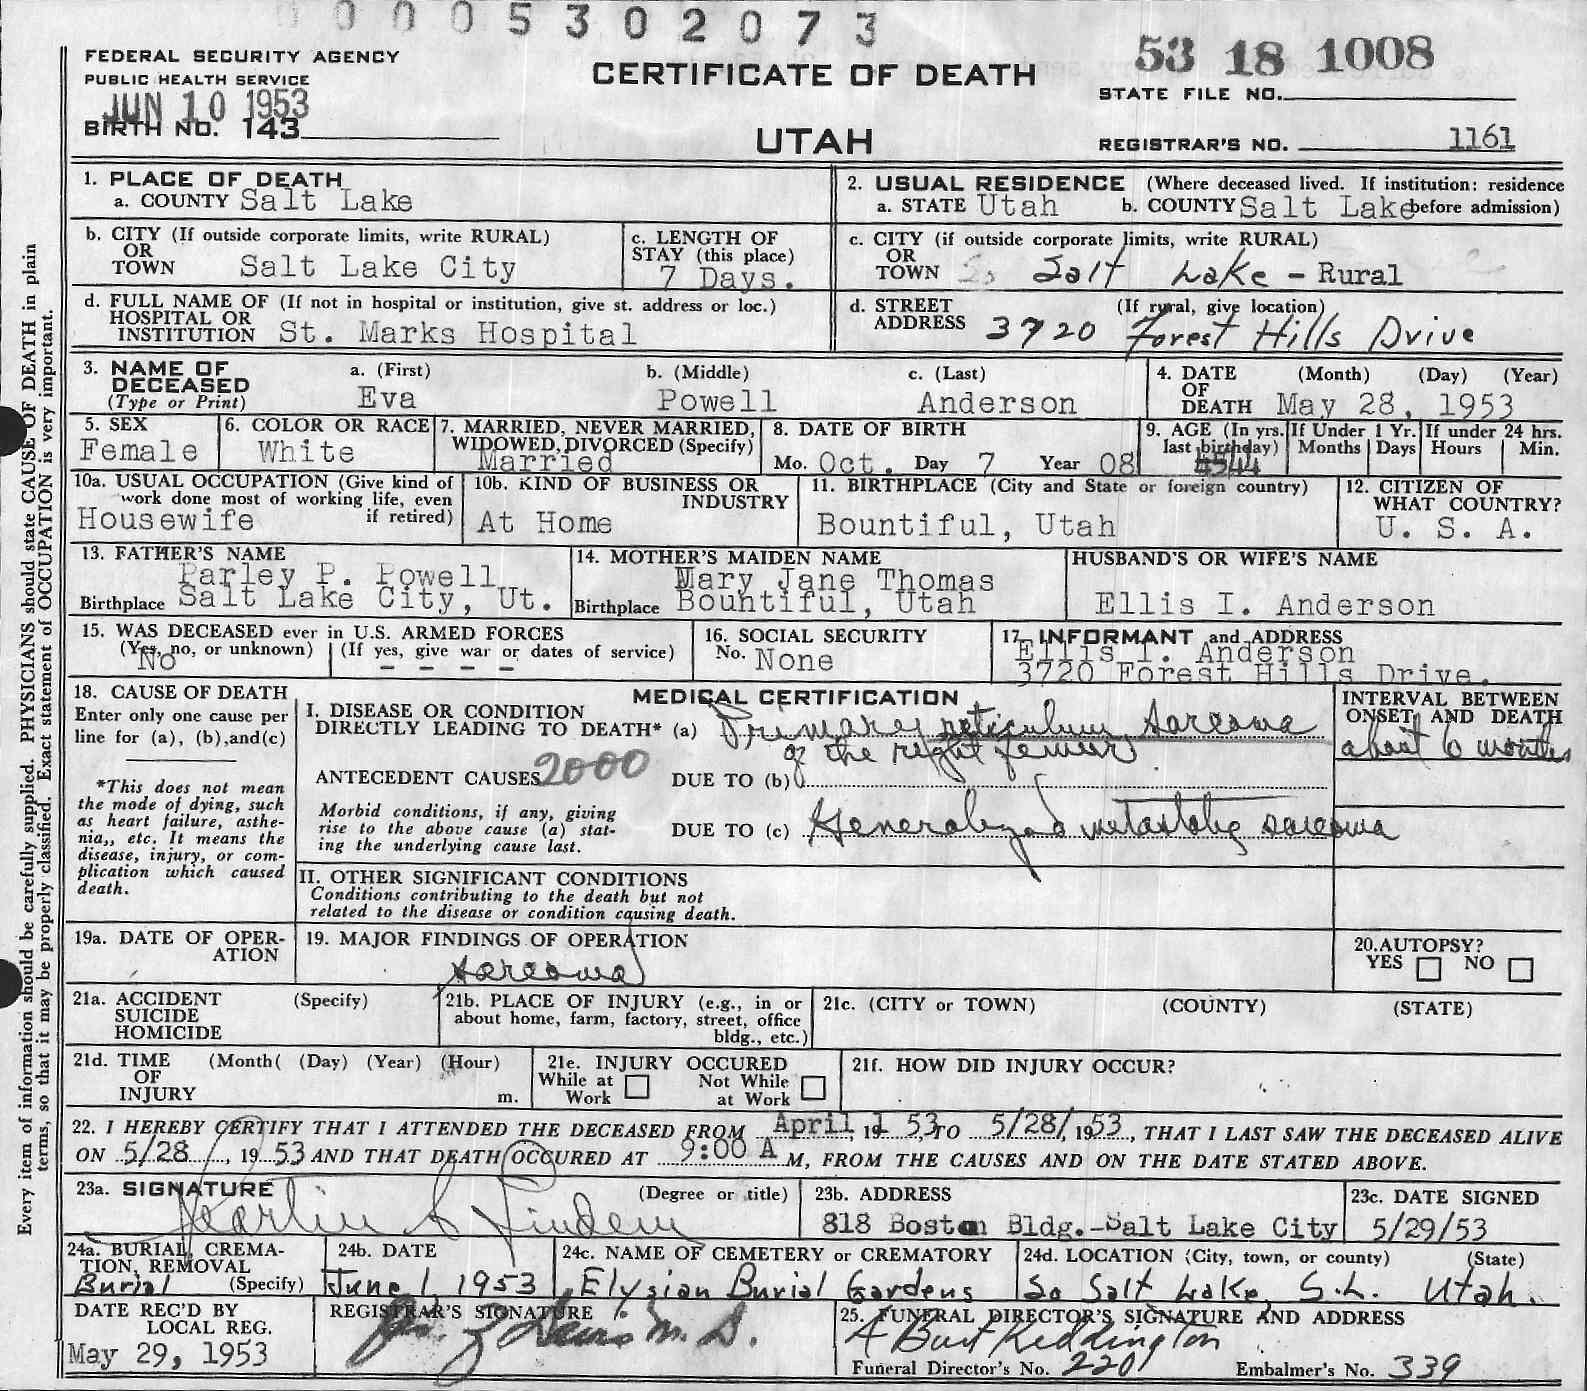 0005302073
FEDERAL SECURITY AGENCY
PUBLIC HEALTH SERVICE
JUN 10 1953
BIRTH NO. 143
CERTIFICATE OF DEATH
UTAH
53 18 1008
STATE FILE NO.
REGISTRAR'S NO. 1161
1. PLACE OF DEATH
a. COUNTY Salt Lake
2. USUAL RESIDENCE (Where deceased lived. If institution: residence
a. STATE Utah b. COUNTY Salt Lake before admission)
b. CITY (If outside corporate limits, write RURAL)
OR
TOWN Salt Lake City
c. LENGTH OF
STAY (this place)
7 Days.
c. CITY (if outside corporate limits, write RURAL)
OR
TOWN So Salt Lake - Rural
d. FULL NAME OF (If not in hospital or institution, give st. address or loc.)
HOSPITAL OR
INSTITUTION St. Marks Hospital
d. STREET (If rural, give location)
ADDRESS 3720 Forest Hills Drive
3. NAME OF a. (First) b. (Middle) c. (Last)
DECEASED
(Type or Print) Eva Powell Anderson
4. DATE (Month) (Day) (Year)
OF
DEATH May 28, 1953
5. SEX
Female
6. COLOR OR RACE
White
7. MARRIED, NEVER MARRIED,
WIDOWED, DIVORCED (Specify)
Married
8. DATE OF BIRTH
Mo. Oct. Day 7 Year 08
9. AGE (In yrs. If Under 1 Yr. If under 24 hrs.
last birthday) Months Days Hours Min.
44
10a. USUAL OCCUPATION (Give kind of
work done most of working life, even
if retired)
Housewife
10b. KIND OF BUSINESS OR
INDUSTRY
At Home
11. BIRTHPLACE (City and State or foreign country)
Bountiful, Utah
12. CITIZEN OF
WHAT COUNTRY?
U. S. A.
13. FATHER'S NAME
Parley P. Powell
Birthplace Salt Lake City, Ut.
14. MOTHER'S MAIDEN NAME
Mary Jane Thomas
Birthplace Bountiful, Utah
HUSBAND'S OR WIFE'S NAME
Ellis I. Anderson
15. WAS DECEASED ever in U.S. ARMED FORCES
(Yes, no, or unknown) (If yes, give war or dates of service)
No - - - -
16. SOCIAL SECURITY
No. None
17. INFORMANT and ADDRESS
Ellis I. Anderson
3720 Forest Hills Drive.
18. CAUSE OF DEATH
Enter only one cause per
line for (a), (b), and (c)
*This does not mean
the mode of dying, such
as heart failure, asthe-
nia,, etc. It means the
disease, injury, or com-
plication which caused
death.
MEDICAL CERTIFICATION
I. DISEASE OR CONDITION
DIRECTLY LEADING TO DEATH* (a) Primary reticulum sarcoma
of the right femur
ANTECEDENT CAUSES 2000 DUE TO (b)
Morbid conditions, if any, giving
rise to the above cause (a) stat-
ing the underlying cause last.
DUE TO (c) Generalized metastatic sarcoma
INTERVAL BETWEEN
ONSET AND DEATH
about 6 months
II. OTHER SIGNIFICANT CONDITIONS
Conditions contributing to the death but not
related to the disease or condition causing death.
19a. DATE OF OPER-
ATION
19. MAJOR FINDINGS OF OPERATION
sarcoma
20. AUTOPSY?
YES NO
21a. ACCIDENT (Specify)
SUICIDE
HOMICIDE
21b. PLACE OF INJURY (e.g., in or
about home, farm, factory, street, office
bldg., etc.)
21c. (CITY or TOWN) (COUNTY) (STATE)
21d. TIME (Month( (Day) (Year) (Hour)
OF
INJURY m.
21e. INJURY OCCURED
While at Work Not While at Work
21f. HOW DID INJURY OCCUR?
22. I HEREBY CERTIFY THAT I ATTENDED THE DECEASED FROM April 1, 1953, TO 5/28/, 1953, THAT I LAST SAW THE DECEASED ALIVE
ON 5/28, 1953 AND THAT DEATH OCCURED AT 9:00 A M, FROM THE CAUSES AND ON THE DATE STATED ABOVE.
23a. SIGNATURE (Degree or title)
Martin Lindem
23b. ADDRESS
818 Boston Bldg.-Salt Lake City
23c. DATE SIGNED
5/29/53
24a. BURIAL, CREMA-
TION, REMOVAL
Burial (Specify)
24b. DATE
June 1 1953
24c. NAME OF CEMETERY or CREMATORY
Elysian Burial Gardens
24d. LOCATION (City, town, or county) (State)
So Salt Lake, S.L. Utah.
DATE REC'D BY
LOCAL REG.
May 29, 1953
REGISTRAR'S SIGNATURE
M. D.
25. FUNERAL DIRECTOR'S SIGNATURE AND ADDRESS
A Burt Keddington
Funeral Director's No. 2201 Embalmer's No. 339
Every item of information should be carefully supplied. PHYSICIANS should state CAUSE OF DEATH in plain
terms, so that it may be properly classified. Exact statement of OCCUPATION is very important.